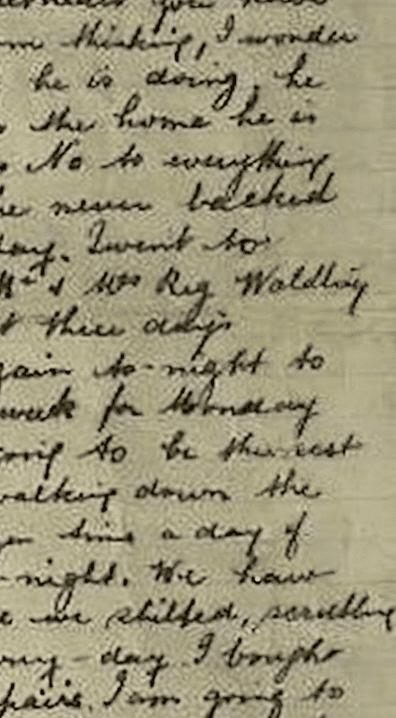 you have
m thinking, I wonder
he is doing, he
the home he is
No to everything
he never backed
day. I went to
Mr & Mrs Reg Waldling
t three days
gain to-night to
week for Monday
oing to be the rest
walking down the
time a day of
-night. We have
e we shifted, scrubbing
ery-day I bought
pairs. I am going to